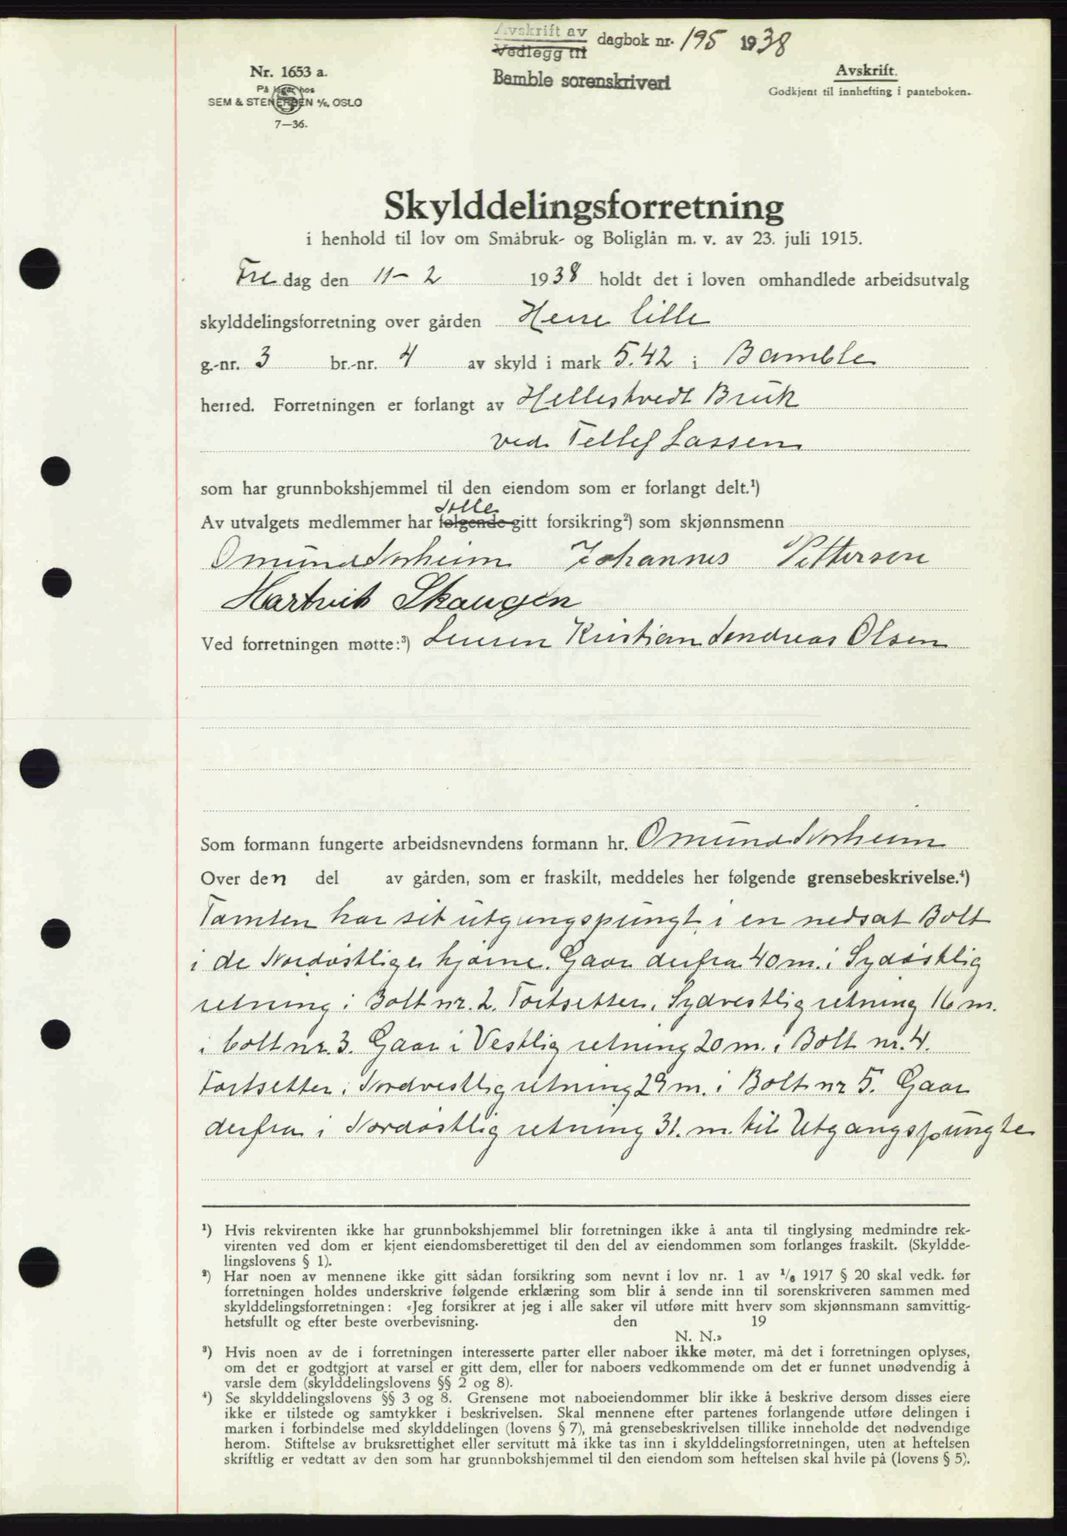 Avskrift av
Vedlegg til dagbok nr. 195 1938
Bamble sorenskriveri
Nr. 1653 a.
På lager hos
SEM & STENERSEN A/S, OSLO
7—36.
Avskrift.
Godkjent til innhefting i panteboken.
Skylddelingsforretning
i henhold til lov om Småbruk- og Boliglån m. v. av 23. juli 1915.
Fre dag den 11-2 1938 holdt det i loven omhandlede arbeidsutvalg
skylddelingsforretning over gården Herre lille
g.-nr. 3 br.-nr. 4 av skyld i mark 5.42 i Bamble
herred. Forretningen er forlangt av Hellestvedt Bruk
ved Tellef Lassen
som har grunnbokshjemmel til den eiendom som er forlangt delt.¹)
Av utvalgets medlemmer har følgende gitt forsikring²) som skjønnsmenn
Omund Norheim Johannes Pettersen
Hartvik Skaugen
Ved forretningen møtte:³) Kristian Olsen
Som formann fungerte arbeidsnevndens formann hr. Omund Norheim
Over den del av gården, som er fraskilt, meddeles her følgende grensebeskrivelse.⁴)
Tomten har sit utgangspungt i en nedsat Bolt
i de Nordøstlige hjørne. Gaar derfra 40 m. i Sydøstlig
retning i Bolt nr. 2. Fortsetter i Sydvestlig retning 16 m.
i bolt nr. 3. Gaar i Vestlig retning 20 m. i Bolt nr. 4.
Fortsetter i Nordvestlig retning 29 m. i Bolt nr 5. Gaar
derfra i Nordøstlig retning 31. m. til Utgangspungte
¹) Hvis rekvirenten ikke har grunnbokshjemmel blir forretningen ikke å anta til tinglysing medmindre rek-
virenten ved dom er kjent eiendomsberettiget til den del av eiendommen som forlanges fraskilt. (Skyldde-
lingslovens § 1).
²) Har noen av mennene ikke gitt sådan forsikring som nevnt i lov nr. 1 av 1/6 1917 § 20 skal vedk. før
forretningen holdes underskrive følgende erklæring som blir å sende inn til sorenskriveren sammen med
skylddelingsforretningen: «Jeg forsikrer at jeg i alle saker vil utføre mitt hverv som skjønnsmann samvittig-
hetsfullt og efter beste overbevisning. den 19
N. N.»
³) Hvis noen av de i forretningen interesserte parter eller naboer ikke møter, må det i forretningen oplyses,
om det er godtgjort at varsel er gitt dem, eller for naboers vedkommende om det er funnet unødvendig å
varsle dem (skylddelingslovens §§ 2 og 8).
⁴) Se skylddelingslovens §§ 3 og 8. Grensene mot naboeiendommer blir ikke å beskrive dersom disses eiere
ikke er tilstede og samtykker i beskrivelsen. Skal mennene efter partenes forlangende utføre delingen i
marken i forbindelse med skylddelingen (lovens § 7), må grensebeskrivelsen tillike inneholde det nødvendige
herom. Stiftelse av bruksrettighet eller servitutt må ikke tas inn i skylddelingsforretningen, uten at heftelsen
skriftlig er vedtatt av den som har grunnbokshjemmel til den eiendom som heftelsen skal hvile på (lovens § 5).